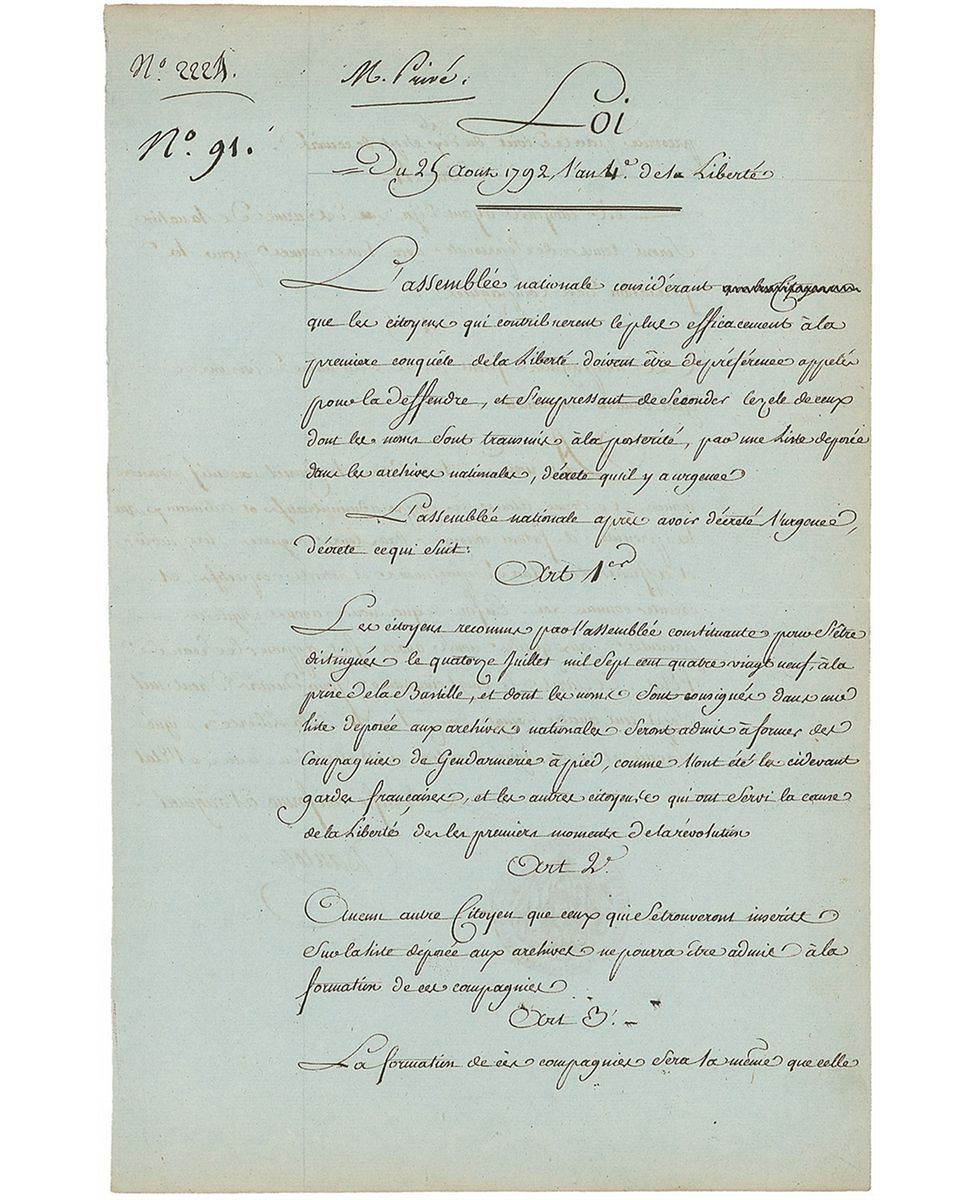 N.º 2224.
M. Privé.
N.º 91.
Loi
Du 25 Aout 1792 l'an 4.e de la Liberté
L'assemblée nationale considérant
que les citoyens qui contribuerent le plus efficacement à la
premiere conquête de la Liberté doivent être de préférence appelés
pour la deffendre, et s'empressant de seconder le zele de ceux
dont les noms sont transmis à la posterité, par une Liste deposée
dans les archives nationales, décrete qu'il y a urgence
L'assemblée nationale après avoir décreté l'urgence,
décrete ce qui suit:
Art 1er
Les citoyens reconnus par l'assemblée constituante pour s'être
distingués le quatorze Juillet mil sept cent quatre vingt neuf, à la
prise de la Bastille, et dont les noms sont consignés dans une
liste déposée aux archives nationales seront admis à former des
Compagnies de Gendarmerie à pied, comme l'ont été les cidevant
gardes françaises, et les autres citoyens qui ont servi la cause
de la Liberté des les premiers moments de la révolution
Art 2.e
Aucun autre Citoyen que ceux qui se trouveront inscrits
sur la liste déposée aux archives ne pourra être admis à la
formation de ces compagnies
Art 3.
La formation de ces compagnies sera la même que celle